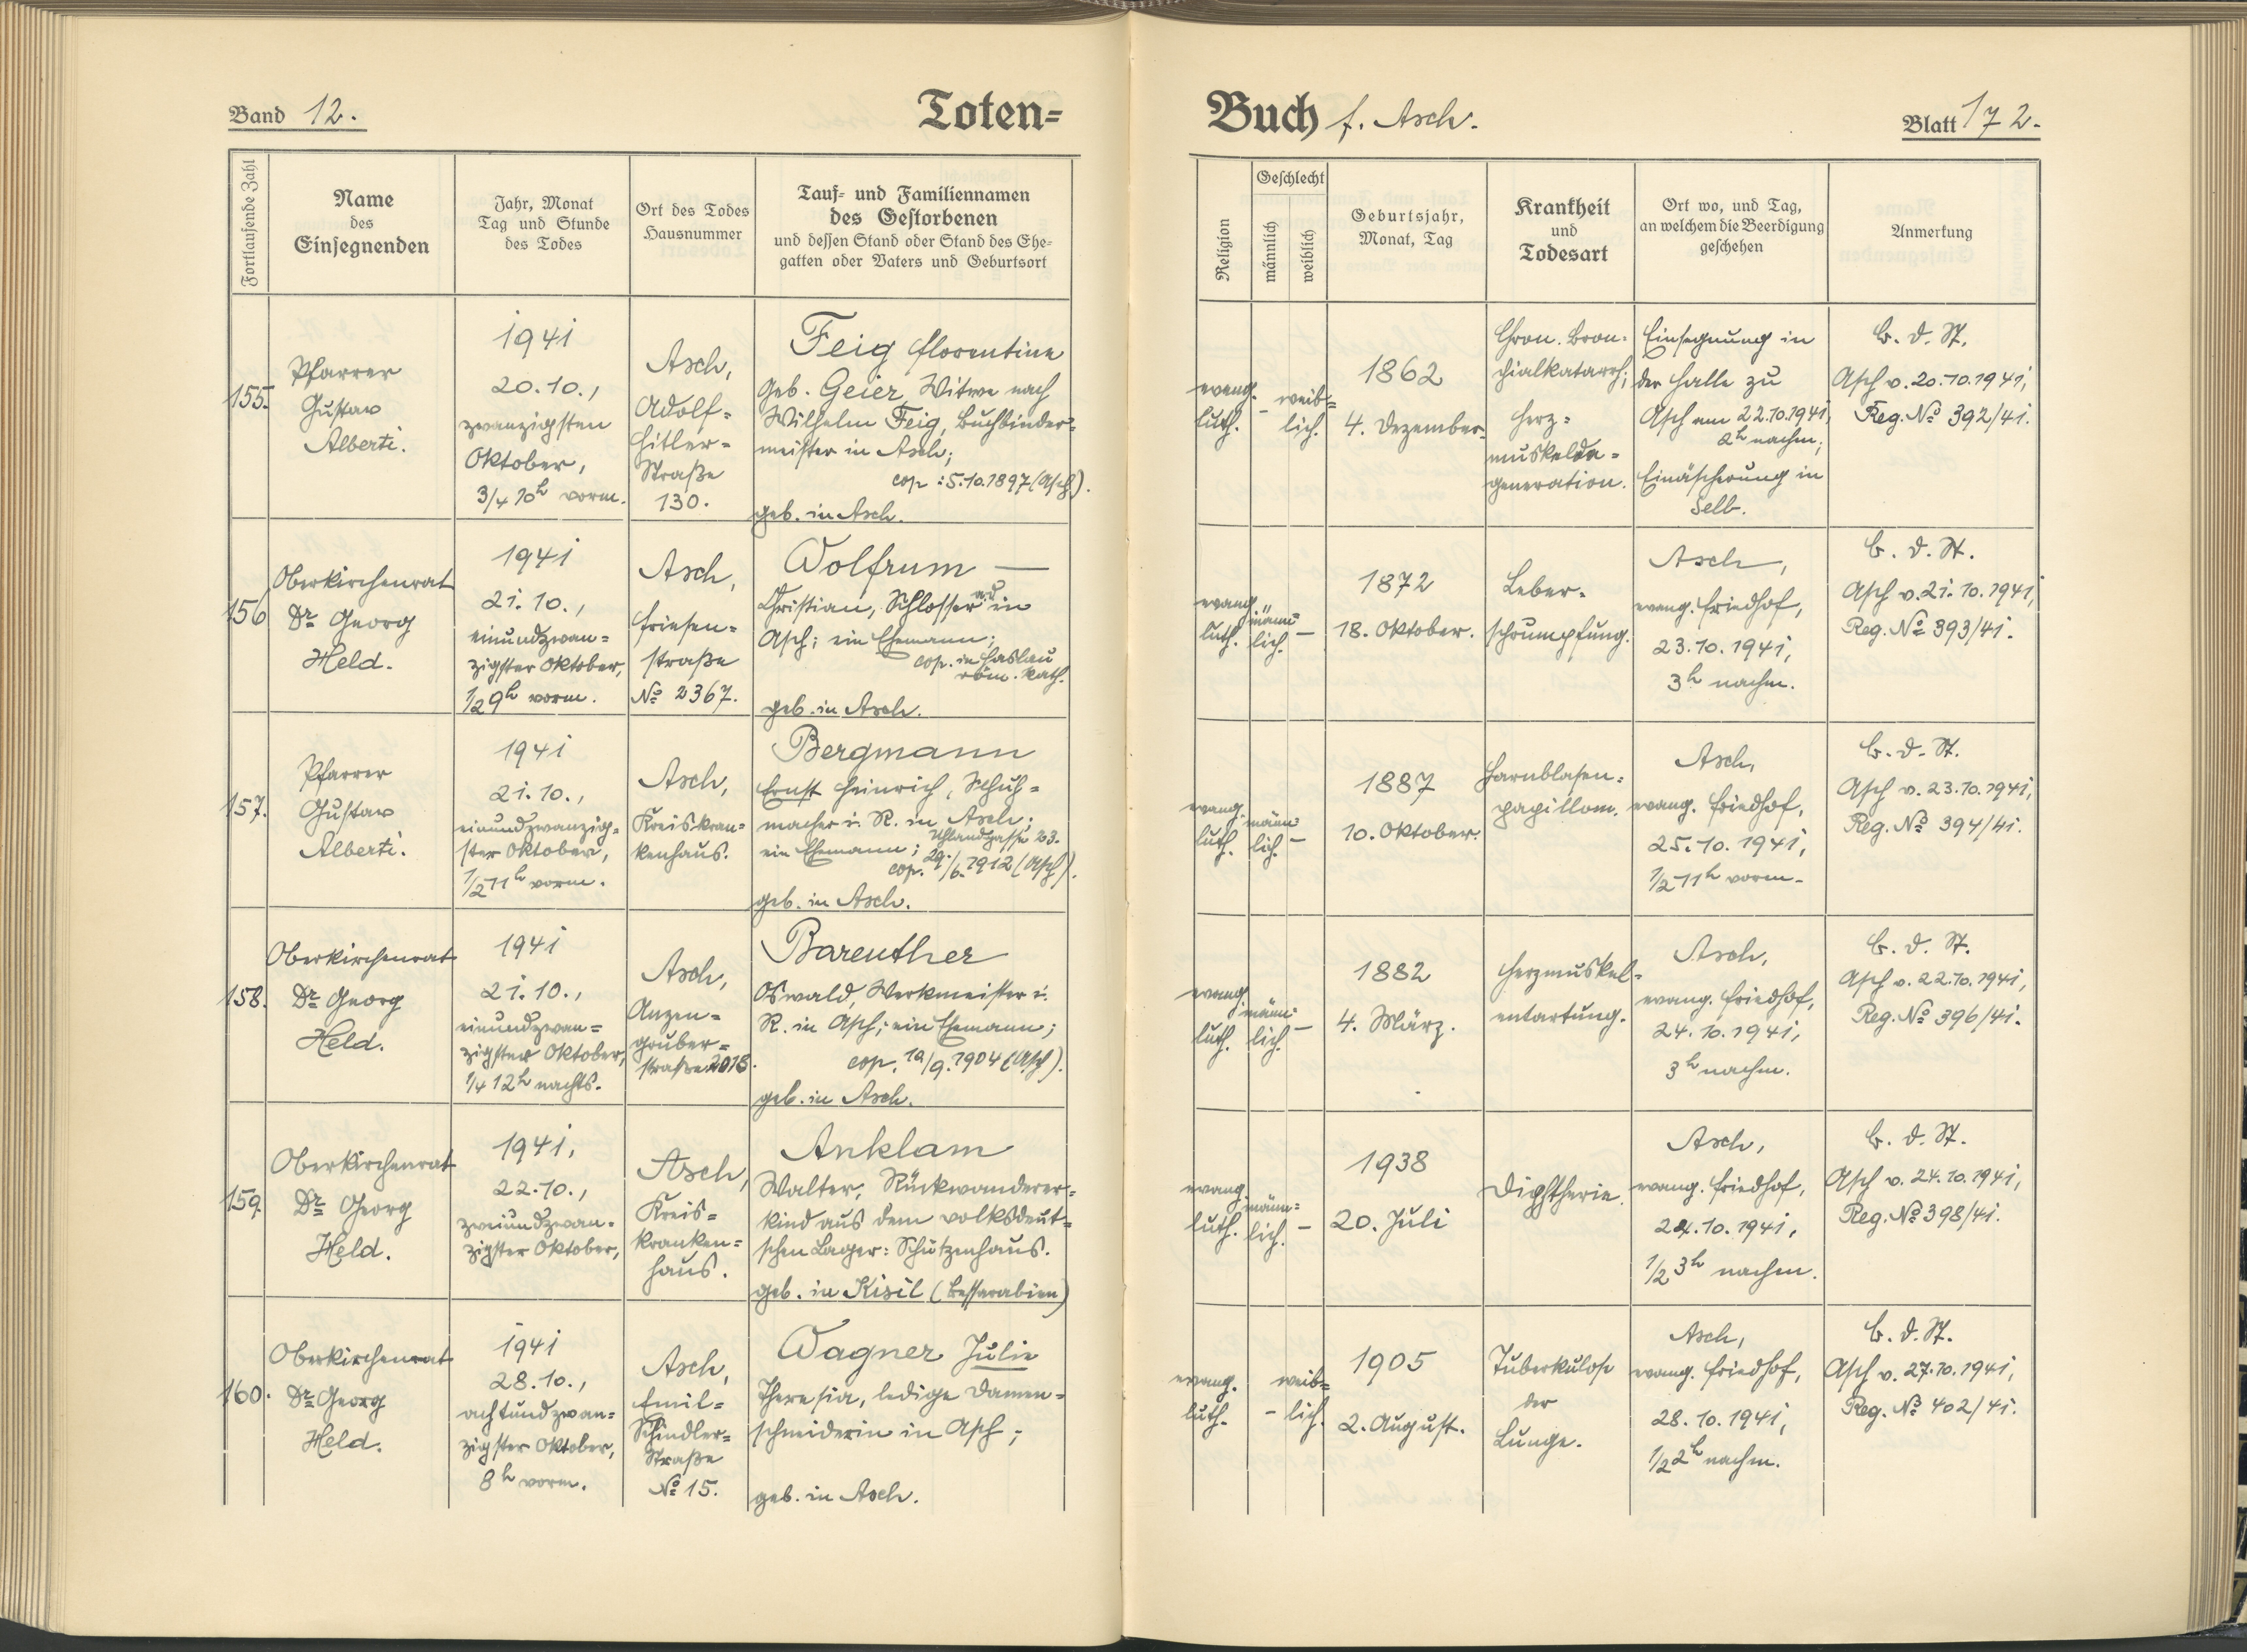 Band 12.
Toten=
Buch f. Asch.
Blatt 172.
Fortlaufende Zahl
Name
des
Einsegnenden
Jahr, Monat
Tag und Stunde
des Todes
Ort des Todes
Hausnummer
Tauf- und Familiennamen
des Gestorbenen
und dessen Stand oder Stand des Ehe-
gatten oder Vaters und Geburtsort
Religion
Geschlecht
männlich
weiblich
Geburtsjahr,
Monat, Tag
Krankheit
und
Todesart
Ort wo, und Tag,
an welchem die Beerdigung
geschehen
Anmerkung
155.
Pfarrer
Gustav
Alberti.
1941
20.10.,
zwanzigsten
Oktober,
3/4 10h vorm.
Asch,
Adolf=
Hitler=
Straße
130.
Feig Florentine
geb. Geier, Witwe nach
Wilhelm Feig, Buchbinder=
meister in Asch;
cop: 5.10.1897 (Asch).
geb. in Asch.
evang.
luth.
–
weib=
lich.
1862
4. Dezember.
Chron. Bron=
chialkatarrh;
Herz=
muskelde=
generation.
Einsegnung in
der Halle zu
Asch am 22.10.1941,
2h nachm;
Einäscherung in
Selb.
B. d. St.
Asch v. 20.10.1941,
Reg. No 392/41.
156
Oberkirchenrat
Dr Georg
Held.
1941
21.10.,
einundzwan=
zigster Oktober,
1/2 9h vorm.
Asch,
Friesen=
straße
No 2367.
Wolfrum —
Christian, Schlosser in
Asch; ein Ehemann;
cop. in Haslau
röm. kath.
geb. in Asch.
evang.
luth.
männ=
lich.
–
1872
18. Oktober.
Leber=
schrumpfung.
Asch,
evang. Friedhof,
23.10.1941,
3h nachm.
B. d. St.
Asch v. 21.10.1941,
Reg. No 393/41.
157.
Pfarrer
Gustav
Alberti.
1941
21.10.,
einundzwanzig=
ster Oktober,
1/2 11h vorm.
Asch,
Kreiskran=
kenhaus.
Bergmann
Ernst Heinrich, Schuh=
macher i. R. in Asch;
Uhlandgasse 23.
ein Ehemann;
cop. 29./6.1912 (Asch).
geb. in Asch.
evang.
luth.
männ=
lich.
–
1887
10. Oktober.
Harnblasen=
papillom.
Asch,
evang. Friedhof,
25.10.1941,
1/2 11h vorm.
B. d. St.
Asch v. 23.10.1941,
Reg. No 394/41.
158.
Oberkirchenrat
Dr Georg
Held.
1941
21.10.,
einundzwan=
zigster Oktober,
1/4 12h nachts.
Asch,
Anzen=
gruber=
straße 2018.
Bareuther
Oswald, Werkmeister i.
R. in Asch; ein Ehemann;
cop. /9.1904 (Asch).
geb. in Asch.
evang.
luth.
männ=
lich.
–
1882
4. März.
Herzmuskel=
entartung.
Asch,
evang. Friedhof,
24.10.1941,
3h nachm.
B. d. St.
Asch v. 22.10.1941,
Reg. No 396/41.
159.
Oberkirchenrat
Dr Georg
Held.
1941,
22.10.,
zweiundzwan=
zigster Oktober,
Asch,
Kreis=
kranken=
haus.
Anklam
Walter, Rückwanderer=
kind aus dem volksdeut=
schen Lager: Schützenhaus.
geb. in Kisil (Bessarabien)
evang.
luth.
männ=
lich.
–
1938
20. Juli
Diphtherie.
Asch,
evang. Friedhof,
24.10.1941,
1/2 3h nachm.
B. d. St.
Asch v. 24.10.1941,
Reg. No 398/41.
160.
Oberkirchenrat
Dr Georg
Held.
1941
28.10.,
achtundzwan=
zigster Oktober,
8h vorm.
Asch,
Emil=
Schindler=
Straße
No 15.
Wagner Julie
Theresia, ledige Damen=
schneiderin in Asch;
geb. in Asch.
evang.
luth.
–
weib=
lich.
1905
2. August.
Tuberkulose
der
Lunge.
Asch,
evang. Friedhof,
28.10.1941,
1/2 2h nachm.
B. d. St.
Asch v. 27.10.1941,
Reg. No 402/41.